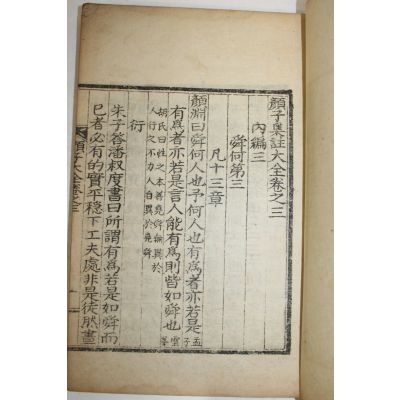 顏子集註大全卷之三
內編三
舜何第三
凡十三章
顏淵曰舜何人也予何人也有爲者亦若是孟子雲峯
有爲者亦若是言人能有爲則皆如舜也
胡氏曰性之本善堯舜無異於人行之不力人自異於堯舜
衍
朱子答潘叔度書曰所謂有爲若是如舜而
已者必有的實平穩下工夫處非是徒然晝
顏子大全卷之三